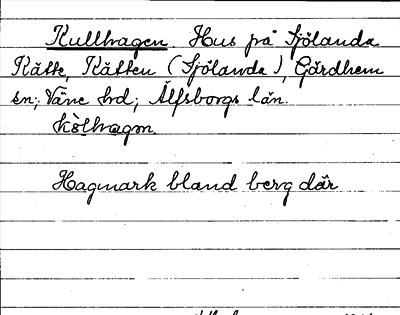 Kullhagen. Hus på Sjölanda
Kätte, Kätten (Sjölanda), Gärdhem
sn; Väne hd; Älfsborgs län.
kòlhagɔn.
Hagmark bland berg där